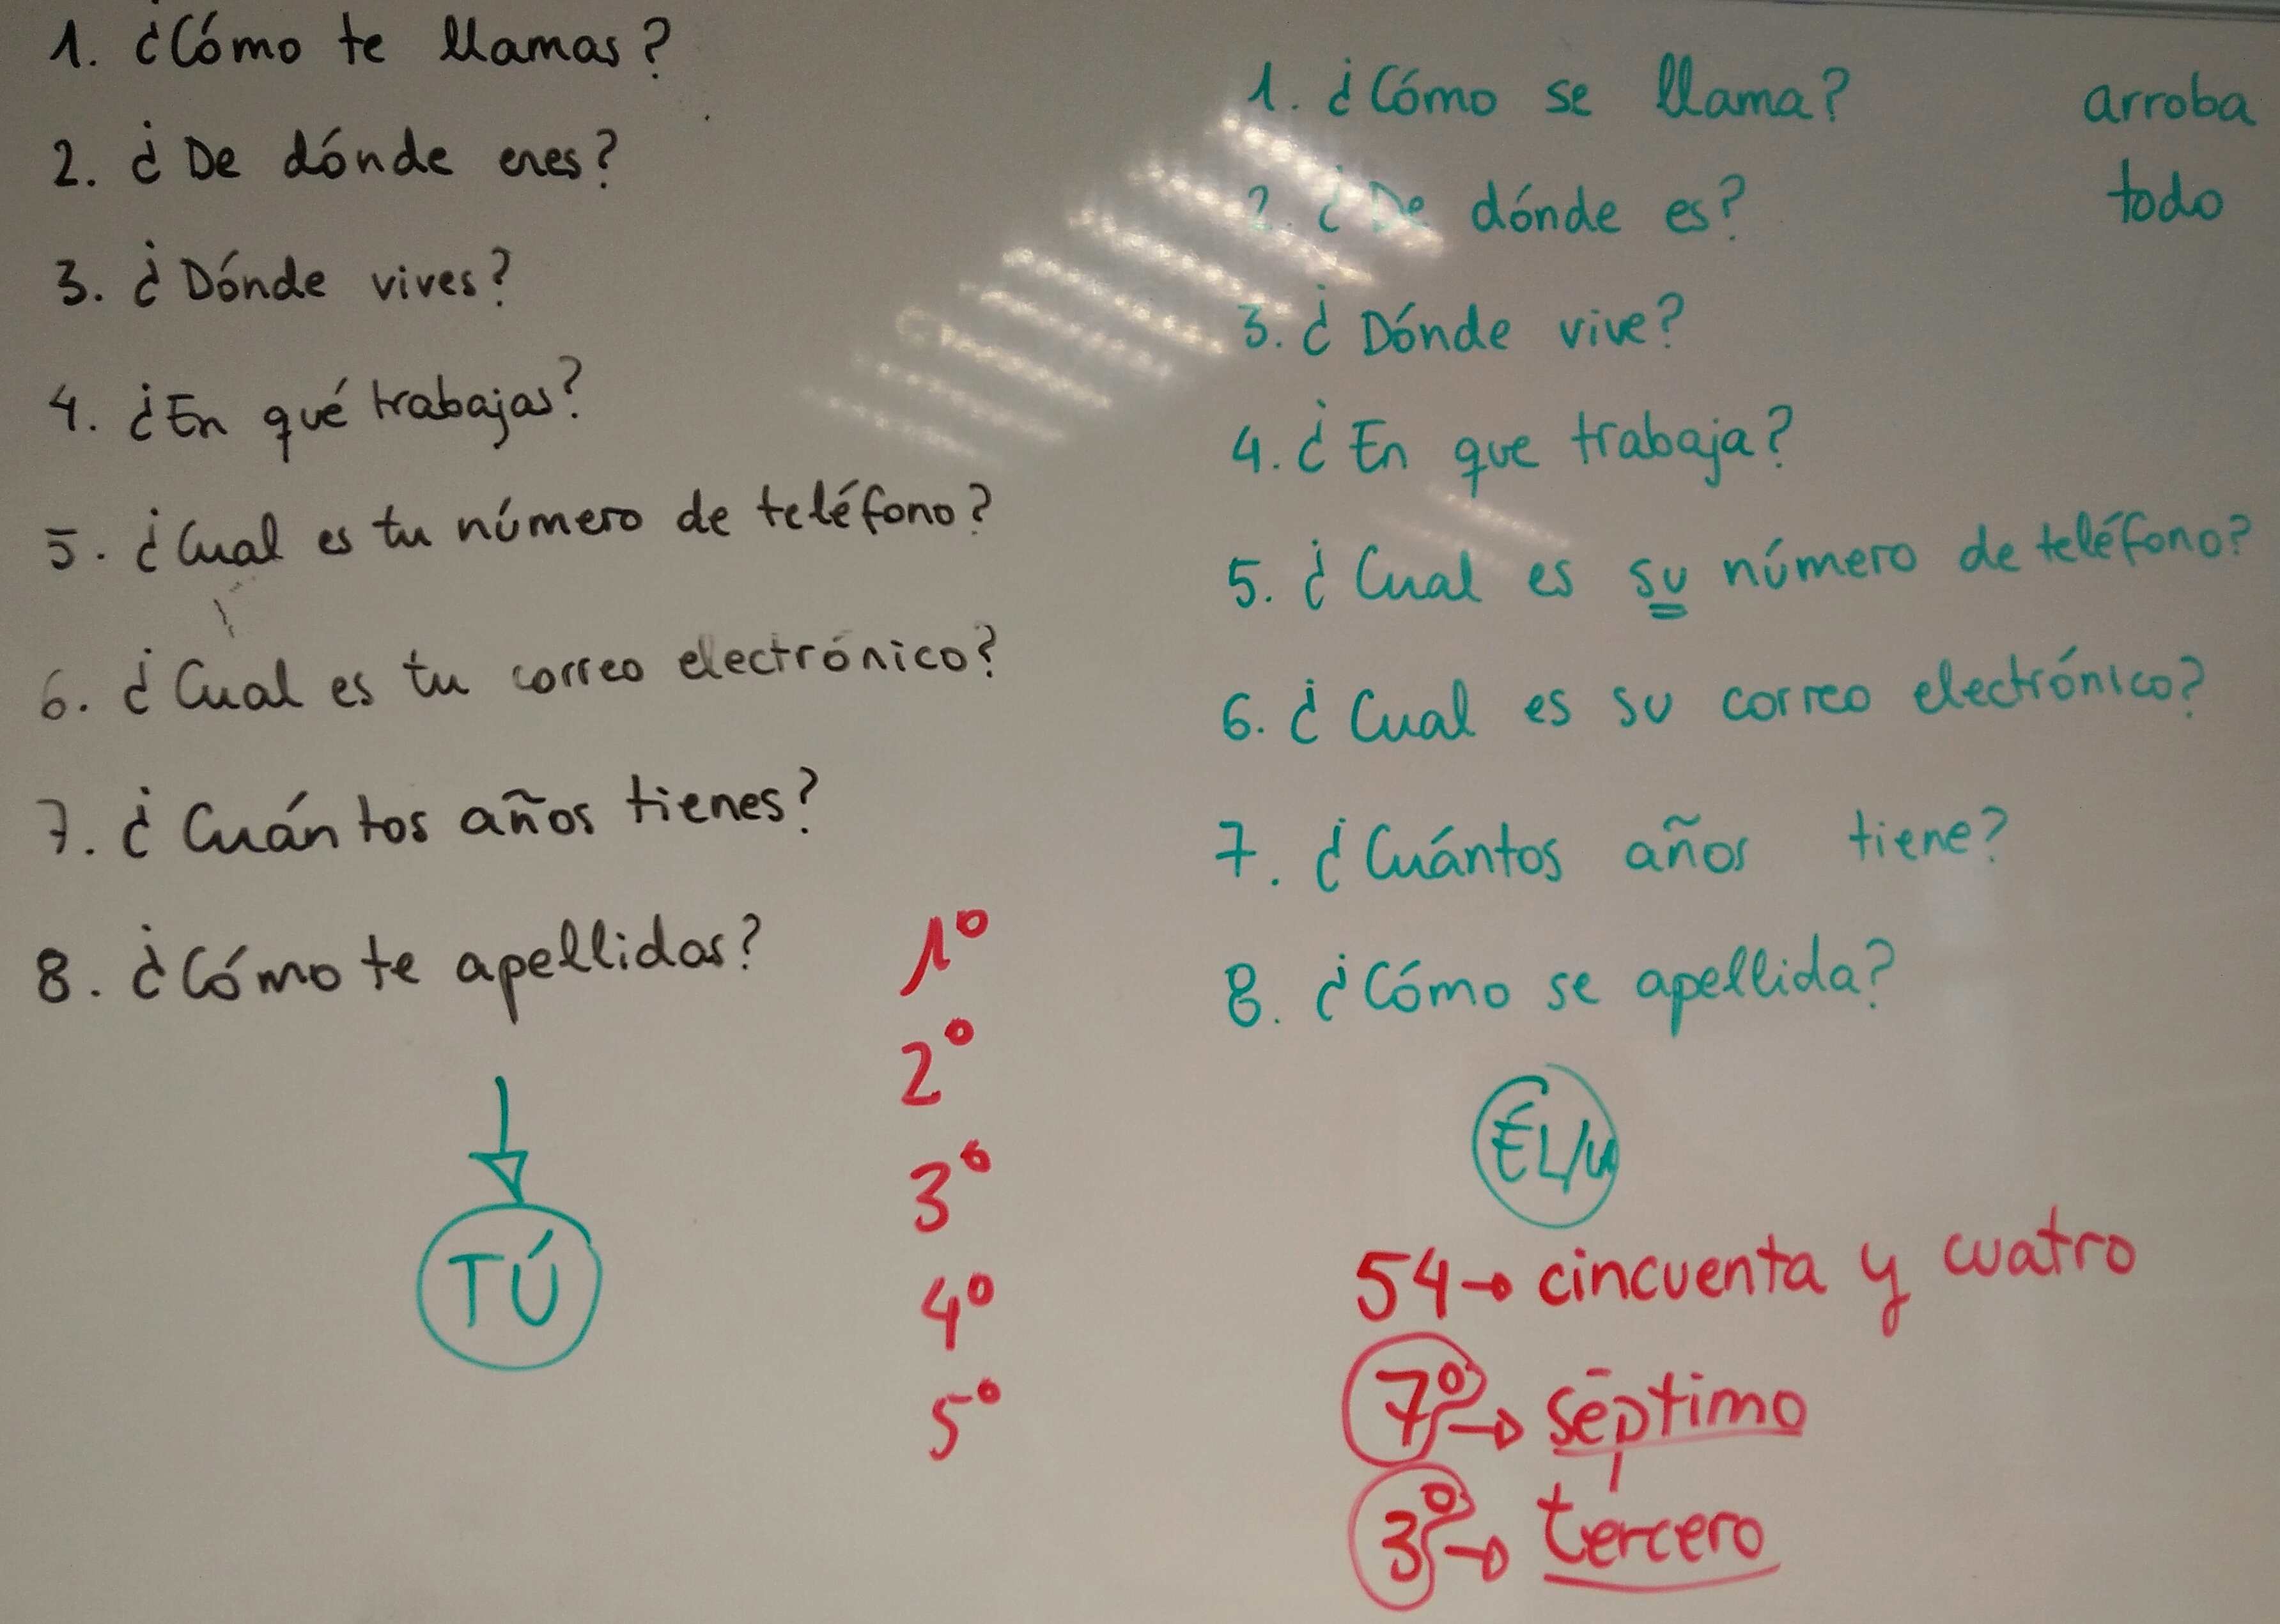 1. ¿Cómo te llamas?
2. ¿De dónde eres?
3. ¿Dónde vives?
4. ¿En qué trabajas?
5. ¿Cual es tu número de teléfono?
6. ¿Cual es tu correo electrónico?
7. ¿Cuántos años tienes?
8. ¿Cómo te apellidas?
TÚ
1º
2º
3º
4º
5º
1. ¿Cómo se llama?
2. ¿De dónde es?
3. ¿Dónde vive?
4. ¿En que trabaja?
5. ¿Cual es su número de teléfono?
6. ¿Cual es su correo electrónico?
7. ¿Cuántos años tiene?
8. ¿Cómo se apellida?
ÉL/u
arroba
todo
54→ cincuenta y cuatro
7º→ séptimo
3º→ tercero